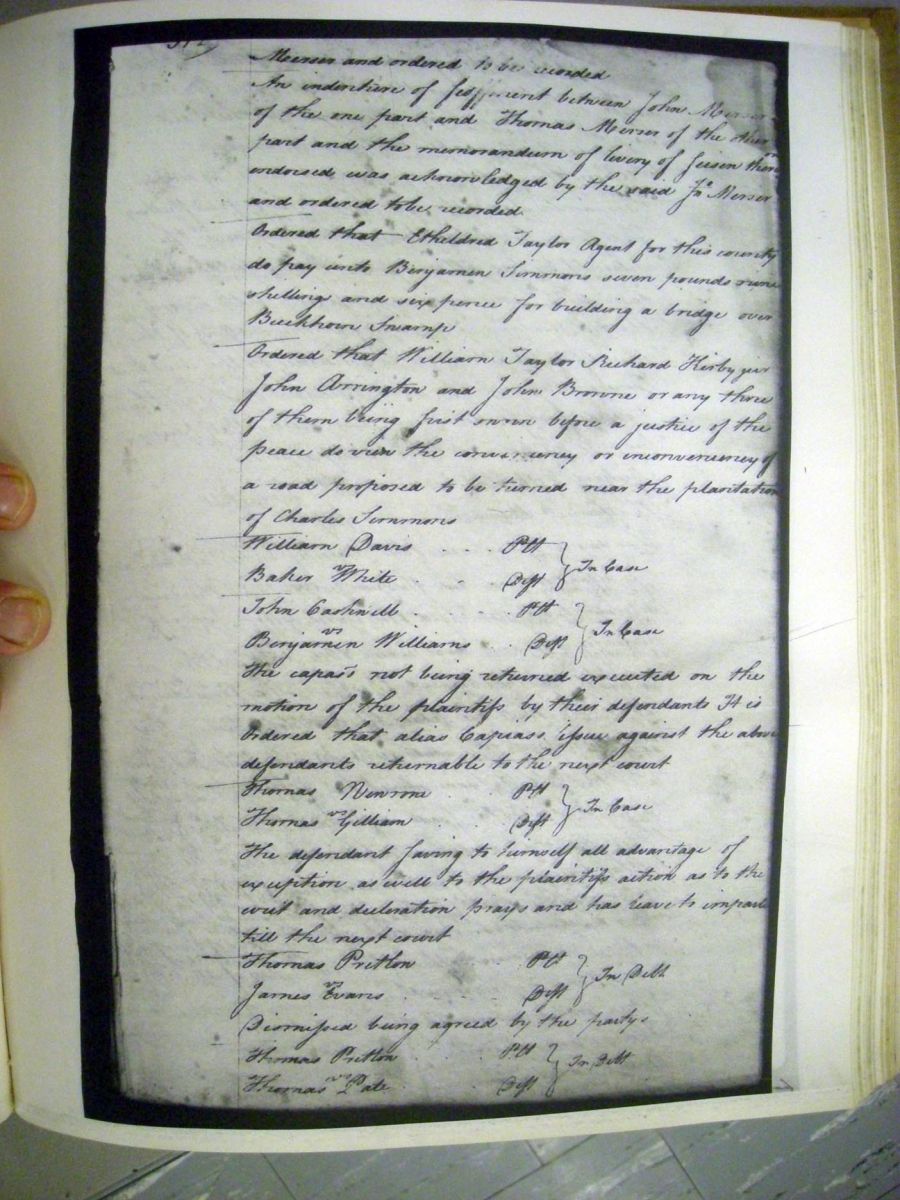 Merser and ordered to be recorded
An indenture of feoffment between John Merser
of the one part and Thomas Merser of the other
part and the memorandum of livery of seisen there
endorsed was acknowledged by the said Jno Merser
and ordered to be recorded
Ordered that Etheldred Taylor Agent for this county
do pay unto Benjamen Simmons seven pounds nine
shillings and six pence for building a bridge over
Buckhorn Swamp
Ordered that William Taylor Richard Kirby junr
John Arrington and John Browne or any three
of them being first sworn before a justice of the
peace do view the conveniency or inconveniency of
a road proposed to be turned near the plantation
of Charles Simmons
William Davis Plt
vs } In Case
Baker White Deft
John Cashnell Plt
vs } In Case
Benjamen Williams Deft
The capias not being returned executed on the
motion of the plaintifs by their defendants It is
Ordered that alias Capiass issue against the above
defendants returnable to the next court
Thomas Newsone Plt
vs } In Case
Thomas Gilliam Deft
The defendant saving to himself all advantage of
exception as well to the plaintifs action as to the
writ and decleration prays and has leave to imparle
till the next court
Thomas Pretlon Plt
vs } In Debt
James Evans Deft
Dismissed being agreed by the partys
Thomas Pretlon Plt
vs } In Debt
Thomas Pate Deft